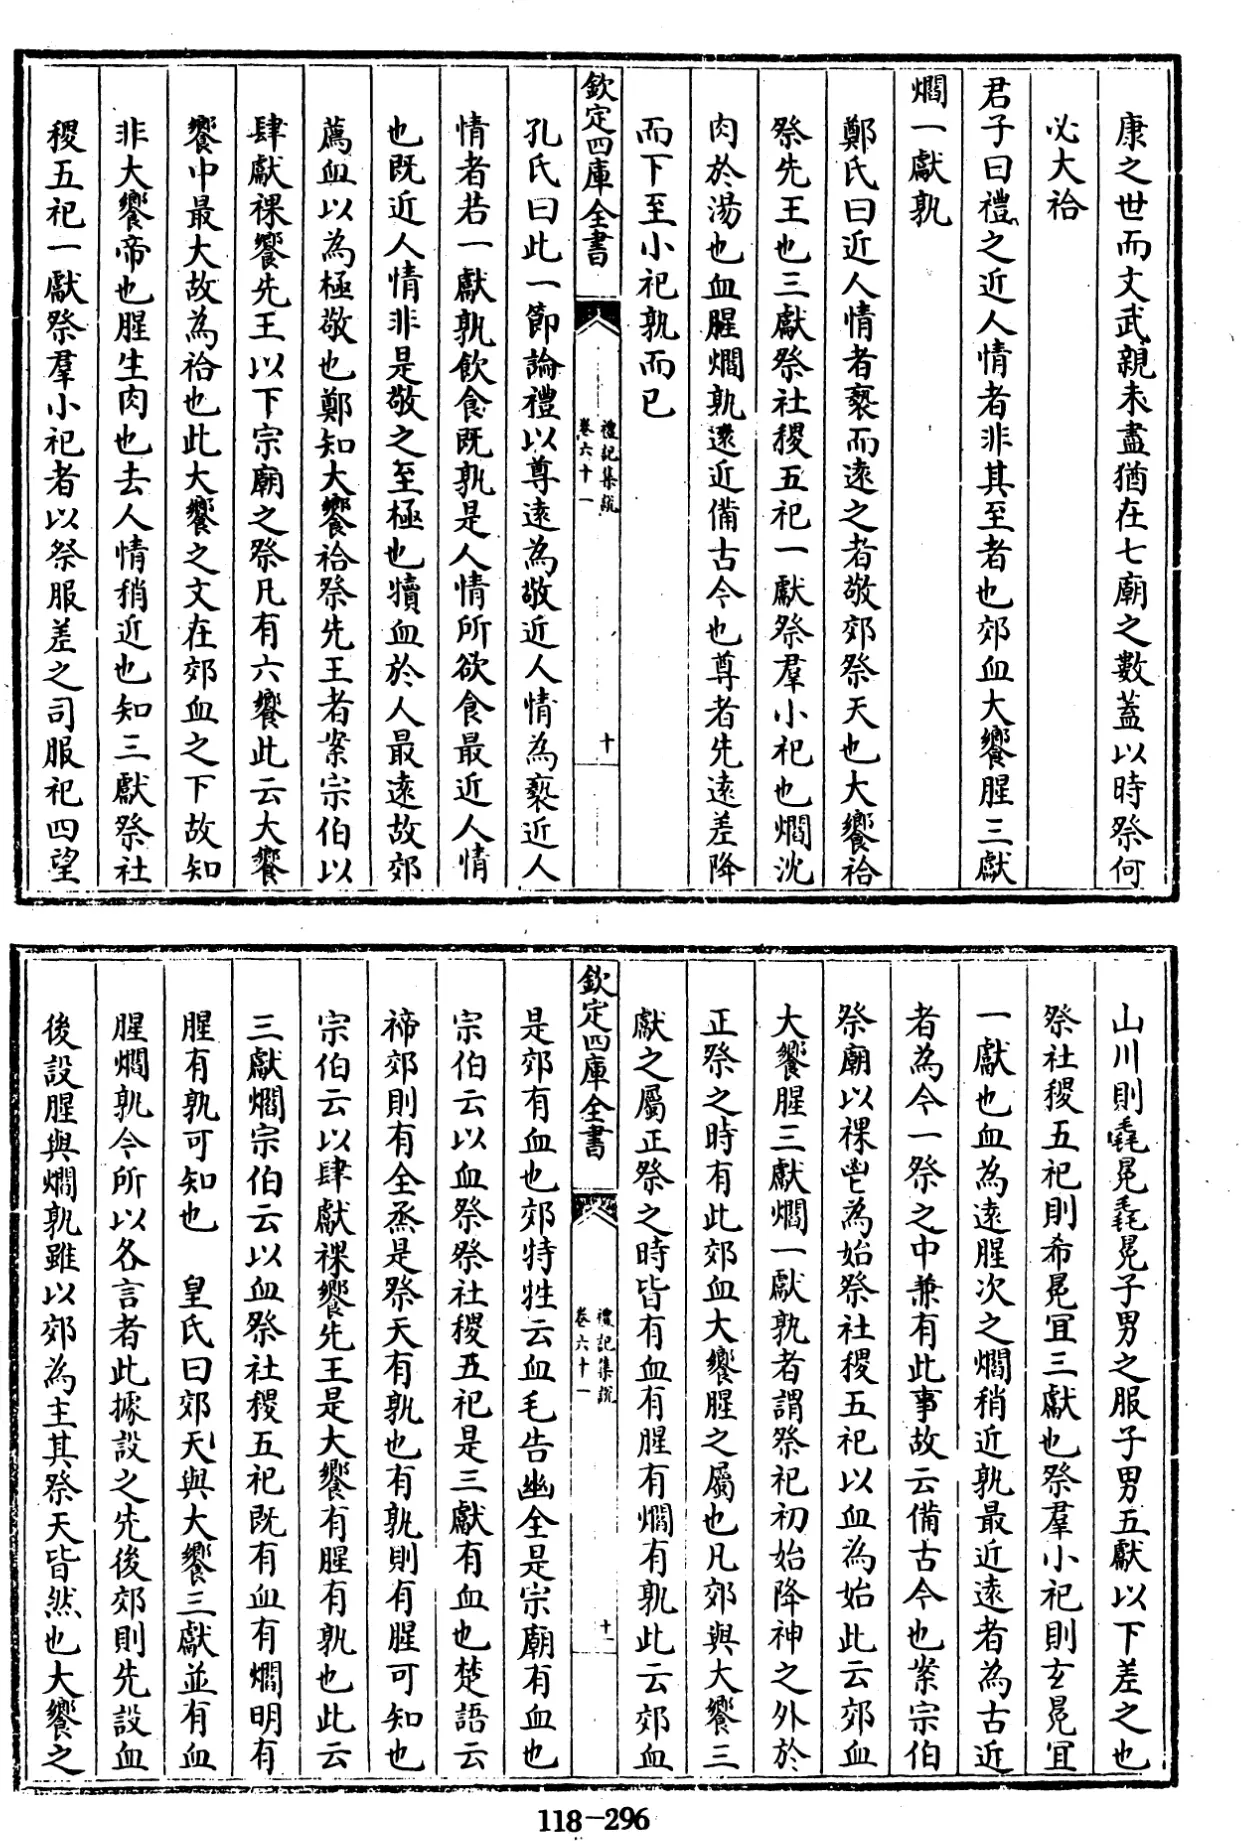 康之世而文武親未盡猶在七廟之數蓋以時祭何
必大祫
君子曰禮之近人情者非其至者也郊血大饗腥三獻
爓一獻孰
鄭氏曰近人情者䙝而遠之者敬郊祭天也大饗祫
祭先王也三獻祭社稷五祀一獻祭羣小祀也爓沈
肉於湯也血腥爓孰遠近備古今也尊者先遠差降
而下至小祀孰而已
欽定四庫全書
禮記集說
卷六十一
十
孔氏曰此一節論禮以尊遠為敬近人情為䙝近人
情者若一獻孰飲食既孰是人情所欲食最近人情
也既近人情非是敬之至極也犢血於人最遠故郊
薦血以為極敬也鄭知大饗祫祭先王者案宗伯以
肆獻祼饗先王以下宗廟之祭凡有六饗此云大饗
饗中最大故為祫也此大饗之文在郊血之下故知
非大饗帝也腥生肉也去人情稍近也知三獻祭社
稷五祀一獻祭羣小祀者以祭服差之司服祀四望
山川則毳冕毳冕子男之服子男五獻以下差之也
祭社稷五祀則希冕宜三獻也祭羣小祀則玄冕宜
一獻也血為遠腥次之爓稍近孰最近遠者為古近
者為今一祭之中兼有此事故云備古今也案宗伯
祭廟以祼鬯為始祭社稷五祀以血為始此云郊血
大饗腥三獻爓一獻孰者謂祭祀初始降神之外於
正祭之時有此郊血大饗腥之屬也凡郊與大饗三
獻之屬正祭之時皆有血有腥有爓有孰此云郊血
欽定四庫全書
禮記集說
卷六十一
十一
是郊有血也郊特牲云血毛告幽全是宗廟有血也
宗伯云以血祭祭社稷五祀是三獻有血也楚語云
禘郊則有全烝是祭天有孰也有孰則有腥可知也
宗伯云以肆獻祼饗先王是大饗有腥有孰也此云
三獻爓宗伯云以血祭社稷五祀既有血有爓明有
腥有孰可知也　皇氏曰郊天與大饗三獻並有血
腥爓孰今所以各言者此據設之先後郊則先設血
後設腥與爓孰雖以郊為主其祭天皆然也大饗之
118-296